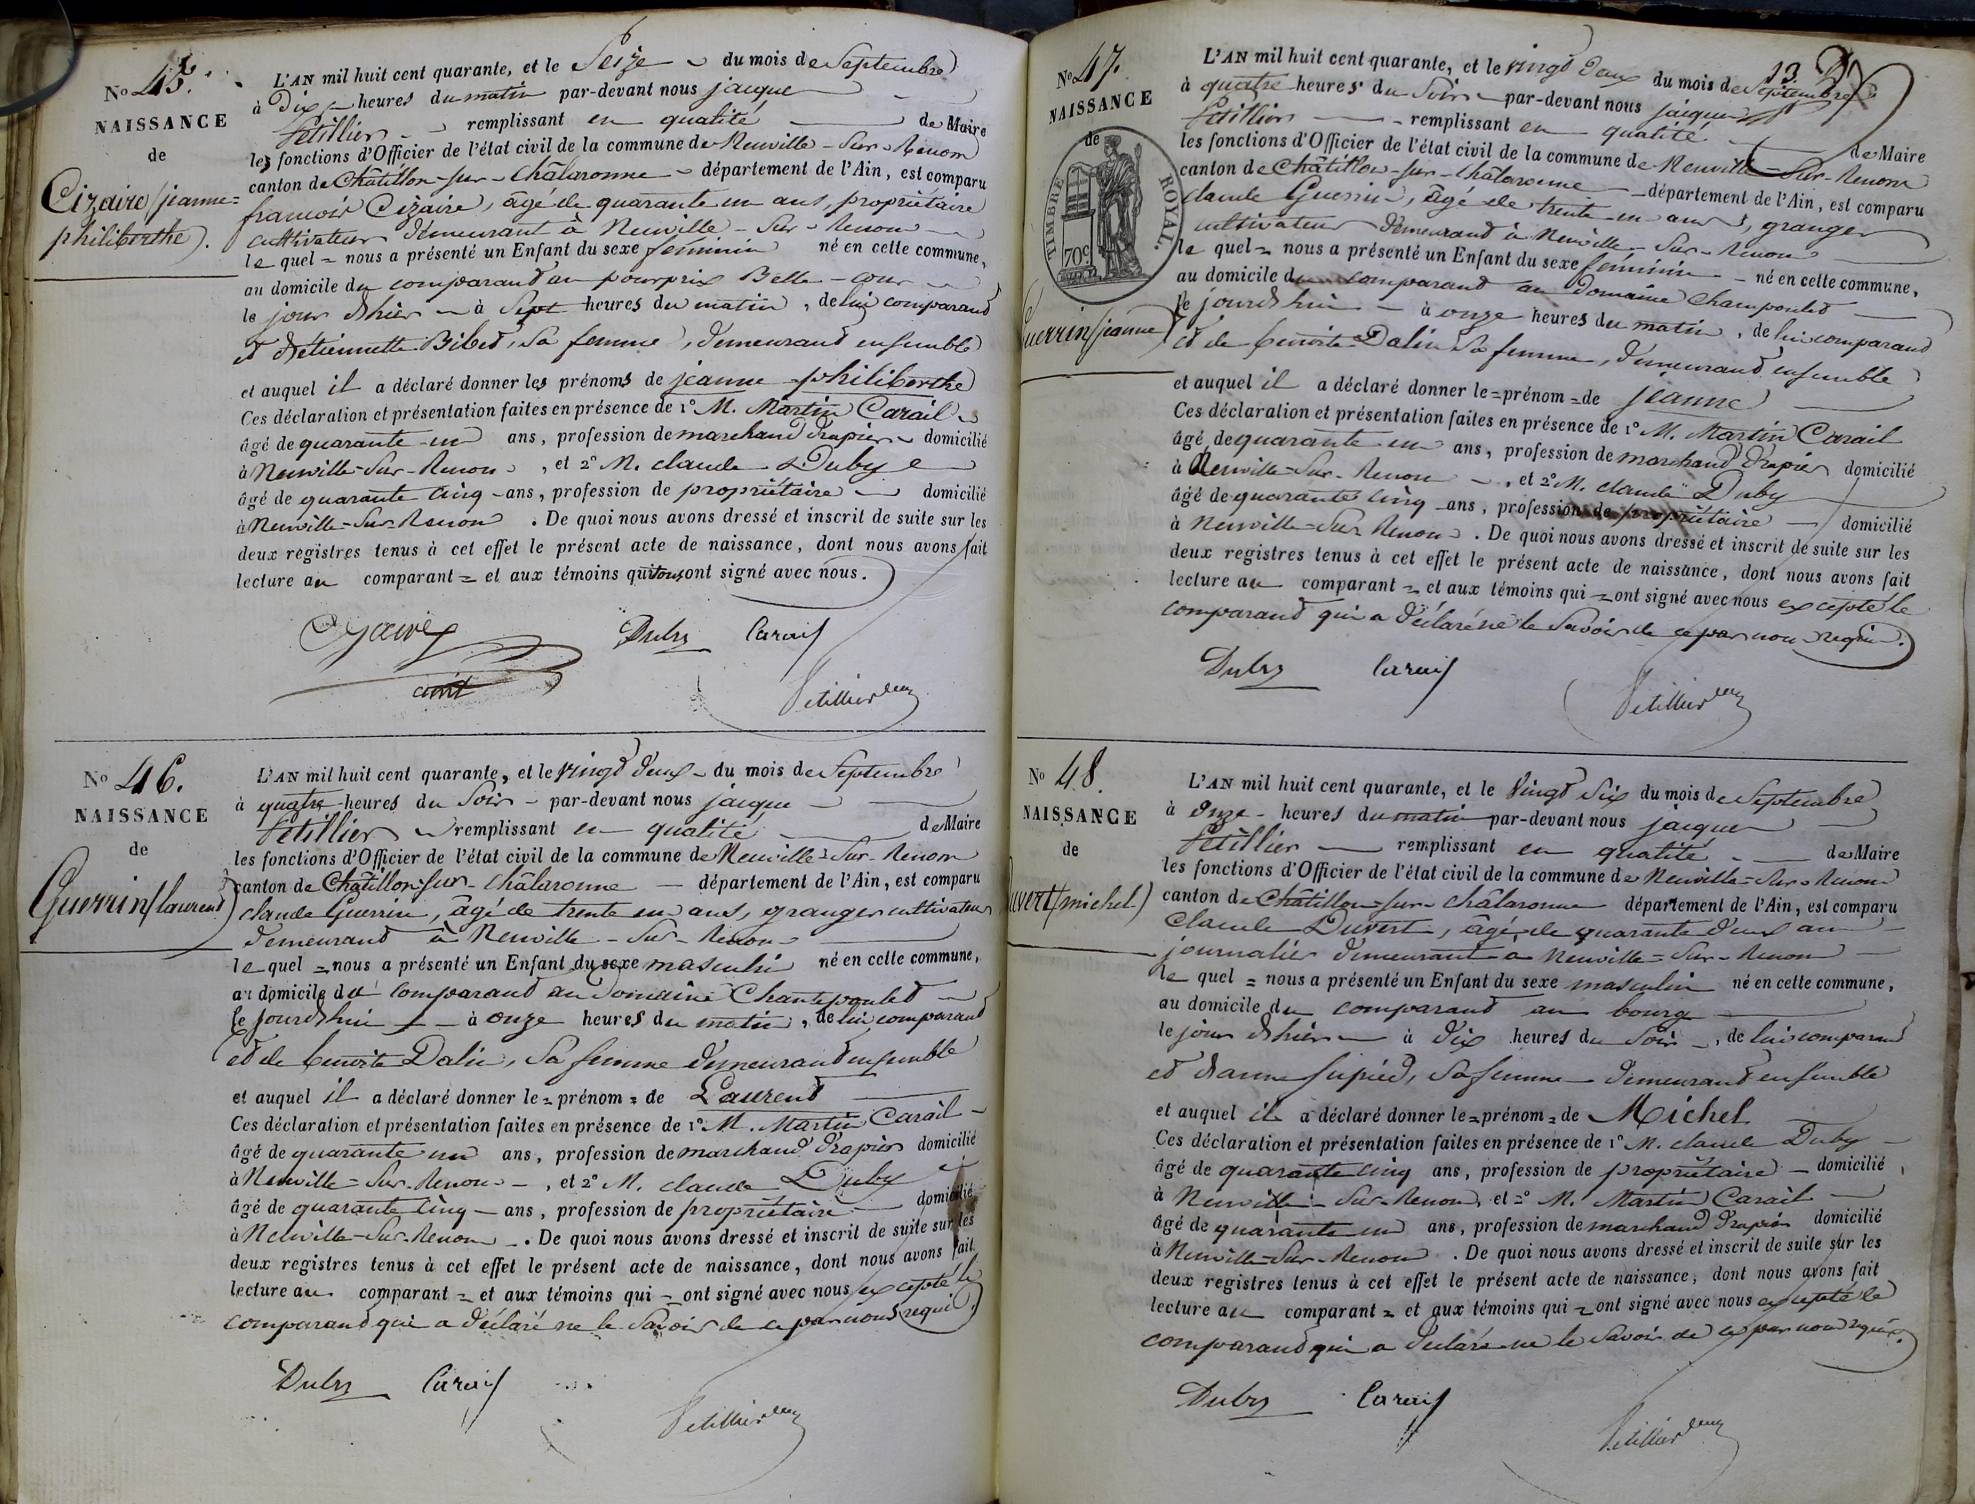 No 45.
NAISSANCE
de
Cizaire (jeanne=
philiberthe).
L'AN mil huit cent quarante, et le Seize du mois de Septembre
à Dix heures du matin par-devant nous jacque
Petillier remplissant en qualité de Maire
les fonctions d'Officier de l'état civil de la commune de Neuville-Sur-Renom
canton de Châtillon-sur-Châlaronne département de l'Ain, est comparu
francois Cizaire, âgé de quarante un ans, propriétaire
cultivateur demeurant à Neuville-Sur-Renom
le quel = nous a présenté un Enfant du sexe feminin né en cette commune,
au domicile du comparand au pourpris Belle-cour
le jour d'hier à Sept heures du matin, de lui comparand
et d'etiennette Bibet, sa femme, demeurand ensemble
et auquel il a déclaré donner les prénoms de jeanne philiberthe
Ces déclaration et présentation faites en présence de 1° M. Martin Carail
âgé de quarante-un ans, profession de marchand drapier domicilié
à Neuville-Sur-Renom, et 2° M. claude Duby
âgé de quarante cinq ans, profession de propriétaire domicilié
à Neuville-Sur Renom. De quoi nous avons dressé et inscrit de suite sur les
deux registres tenus à cet effet le présent acte de naissance, dont nous avons fait
lecture au comparant = et aux témoins qui tous ont signé avec nous.
Duby Carail
Petillier
No 46.
NAISSANCE
de
Guerrin (laurend)
L'AN mil huit cent quarante, et le vingt deux du mois de Septembre
à quatre heures du Soir par-devant nous jacque
Petillier remplissant en qualité de Maire
les fonctions d'Officier de l'état civil de la commune de Neuville-Sur-Renom
canton de Châtillon-sur-Châlaronne département de l'Ain, est comparu
claude Guerrin, âgé de trente un ans, granger cultivateur
demeurand à Neuville-Sur-Renom
le quel = nous a présenté un Enfant du sexe masculin né en cette commune,
au domicile du comparand au Domaine Chantepoulet
le jourd'hui à onze heures du matin, de lui comparand
et de benoite Dalin, sa femme demeurand ensemble
et auquel il a déclaré donner le = prénom = de Laurend
Ces déclaration et présentation faites en présence de 1° M. Martin Carail
âgé de quarante un ans, profession de marchand drapier domicilié
à Neuville-Sur-Renom, et 2° M. claude Duby
âgé de quarante cinq ans, profession de propriétaire domicilié
à Neuville-Sur-Renom. De quoi nous avons dressé et inscrit de suite sur les
deux registres tenus à cet effet le présent acte de naissance, dont nous avons fait
lecture au comparant = et aux témoins qui = ont signé avec nous excepté le
comparand qui a déclaré ne le Savoir de ce par nous requi.
Duby Carail
Petillier
13.
No 47.
NAISSANCE
de
TIMBRE ROYAL.
70c
Guerrin (jeanne)
L'AN mil huit cent quarante, et le vingt deux du mois de Septembre
à quatre heures du Soir par-devant nous jacque
Petillier remplissant en qualité de Maire
les fonctions d'Officier de l'état civil de la commune de Neuville-Sur-Renom
canton de Châtillon-sur-Châlaronne département de l'Ain, est comparu
claude Guerrin, âgé de trente un ans, granger
cultivateur demeurand à Neuville-Sur-Renom
le quel = nous a présenté un Enfant du sexe féminin né en cette commune,
au domicile du comparand au domaine Champoulet
le jourd'hui à onze heures du matin, de lui comparand
et de benoite Dalin sa femme, demeurand ensemble
et auquel il a déclaré donner le = prénom = de Jeanne
Ces déclaration et présentation faites en présence de 1° M. Martin Carail
âgé de quarante un ans, profession de marchand drapier domicilié
à Neuville-Sur-Renom, et 2° M. claude Duby
âgé de quarante cinq ans, profession de propriétaire domicilié
à Neuville-Sur Renom. De quoi nous avons dressé et inscrit de suite sur les
deux registres tenus à cet effet le présent acte de naissance, dont nous avons fait
lecture au comparant = et aux témoins qui = ont signé avec nous excepté le
comparand qui a déclaré ne le Savoir de ce par nou requi.
Duby Carail
Petillier
No 48.
NAISSANCE
de
Duvert (michel)
L'AN mil huit cent quarante, et le Vingt Six du mois de Septembre
à Onze heures du matin par-devant nous jacque
Petillier remplissant en qualité de Maire
les fonctions d'Officier de l'état civil de la commune de Neuville-Sur-Renom
canton de Châtillon-sur-châlaronne département de l'Ain, est comparu
Claude Duvert, âgé de quarante deux an
journalier demeurant à Neuville-Sur-Renom
le quel = nous a présenté un Enfant du sexe masculin né en cette commune,
au domicile du comparand au bourg
le jour d'hier à dix heures du Soir, de lui comparand
et d'anne Supied, sa femme demeurand ensemble
et auquel il a déclaré donner le = prénom = de Michel
Ces déclaration et présentation faites en présence de 1° M. claude Duby
âgé de quarante cinq ans, profession de propriétaire domicilié
à Neuville-Sur-Renom, et 2° M. Martin Carail
âgé de quarante un ans, profession de marchand drapier domicilié
à Neuville-Sur-Renom. De quoi nous avons dressé et inscrit de suite sur les
deux registres tenus à cet effet le présent acte de naissance, dont nous avons fait
lecture au comparant = et aux témoins qui = ont signé avec nous excepté le
comparand qui a déclaré ne le Savoir de ce par nou requis.
Duby Carail
Petillier